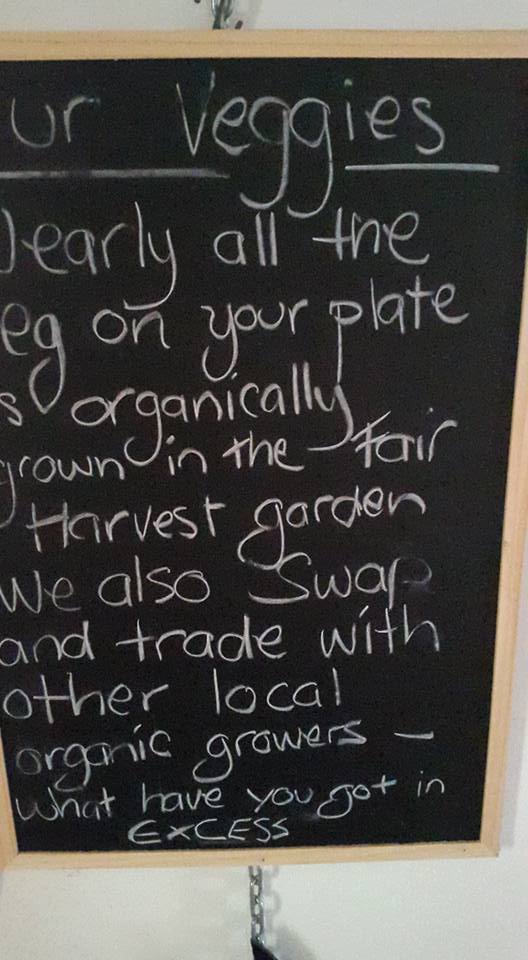 ur Veggies
Nearly all the
eg on your plate
s organically
grown in the Fair
Harvest garden
We also Swap
and trade with
other local
organic growers —
what have you got in
EXCESS